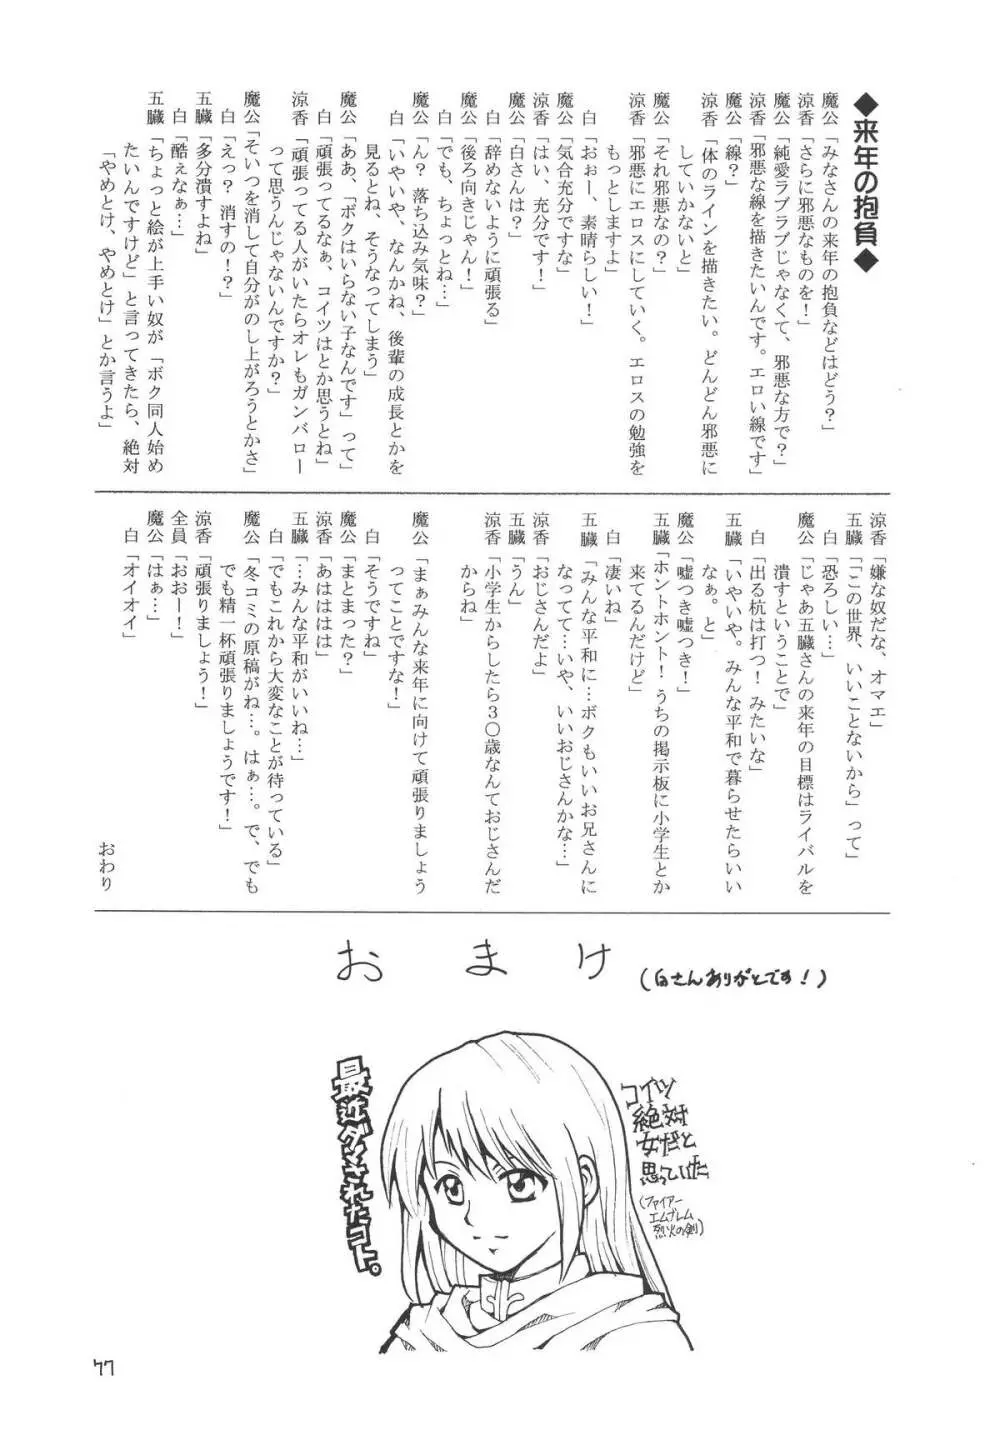 ◆来年の抱負◆
魔公「みなさんの来年の抱負などはどう？」
涼香「さらに邪悪なものを！」
魔公「純愛ラブラブじゃなくて、邪悪な方で？」
涼香「邪悪な線を描きたいんです。エロい線です」
魔公「線？」
涼香「体のラインを描きたい。どんどん邪悪に
していかないと」
魔公「それ邪悪なの？」
涼香「邪悪にエロスにしていく。エロスの勉強を
もっとしますよ」
白「おぉー、素晴らしい！」
魔公「気合充分ですな」
涼香「はい、充分です！」
魔公「白さんは？」
白「辞めないように頑張る」
魔公「後ろ向きじゃん！」
白「でも、ちょっとね…」
魔公「ん？ 落ち込み気味？」
白「いやいや、なんかね、後輩の成長とかを
見るとね、そうなってしまう」
魔公「ああ、「ボクはいらない子なんです」って」
白「頑張ってるなぁ、コイツはとか思うとね」
涼香「頑張ってる人がいたらオレもガンバロー
って思うんじゃないんですか？」
魔公「そいつを消して自分がのし上がろうとかさ」
白「えっ？ 消すの！？」
五臓「多分潰すよね」
白「酷ぇなぁ…」
五臓「ちょっと絵が上手い奴が「ボク同人始め
たいんですけど」と言ってきたら、絶対
「やめとけ、やめとけ」とか言うよ」
涼香「嫌な奴だな、オマエ」
五臓「「この世界、いいことないから」って」
白「恐ろしい…」
魔公「じゃあ五臓さんの来年の目標はライバルを
潰すということで」
白「出る杭は打つ！ みたいな」
五臓「いやいや。みんな平和で暮らせたらいい
なぁ。と」
魔公「嘘つき嘘つき！」
五臓「ホントホント！ うちの掲示板に小学生とか
来てるんだけど」
白「凄いね」
五臓「みんな平和に…ボクもいいお兄さんに
なってて…いや、いいおじさんかな…」
涼香「おじさんだよ」
五臓「うん」
涼香「小学生からしたら３０歳なんておじさんだ
からね」
魔公「まぁみんな来年に向けて頑張りましょう
ってことですな！」
白「そうですね」
魔公「まとまった？」
涼香「あはははは」
五臓「…みんな平和がいいね…」
白「でもこれから大変なことが待っている」
魔公「冬コミの原稿がね…。はぁ…。で、でも
でも精一杯頑張りましょうです！」
涼香「頑張りましょう！」
全員「おおー！」
魔公「はぁ…」
白「オイオイ」
おわり
おまけ
（白さんありがとです！）
最近ダメされたコト。
コイツ
絶対
女だと
思っていた
（ファイアー
エムブレム
烈火の剣）
77